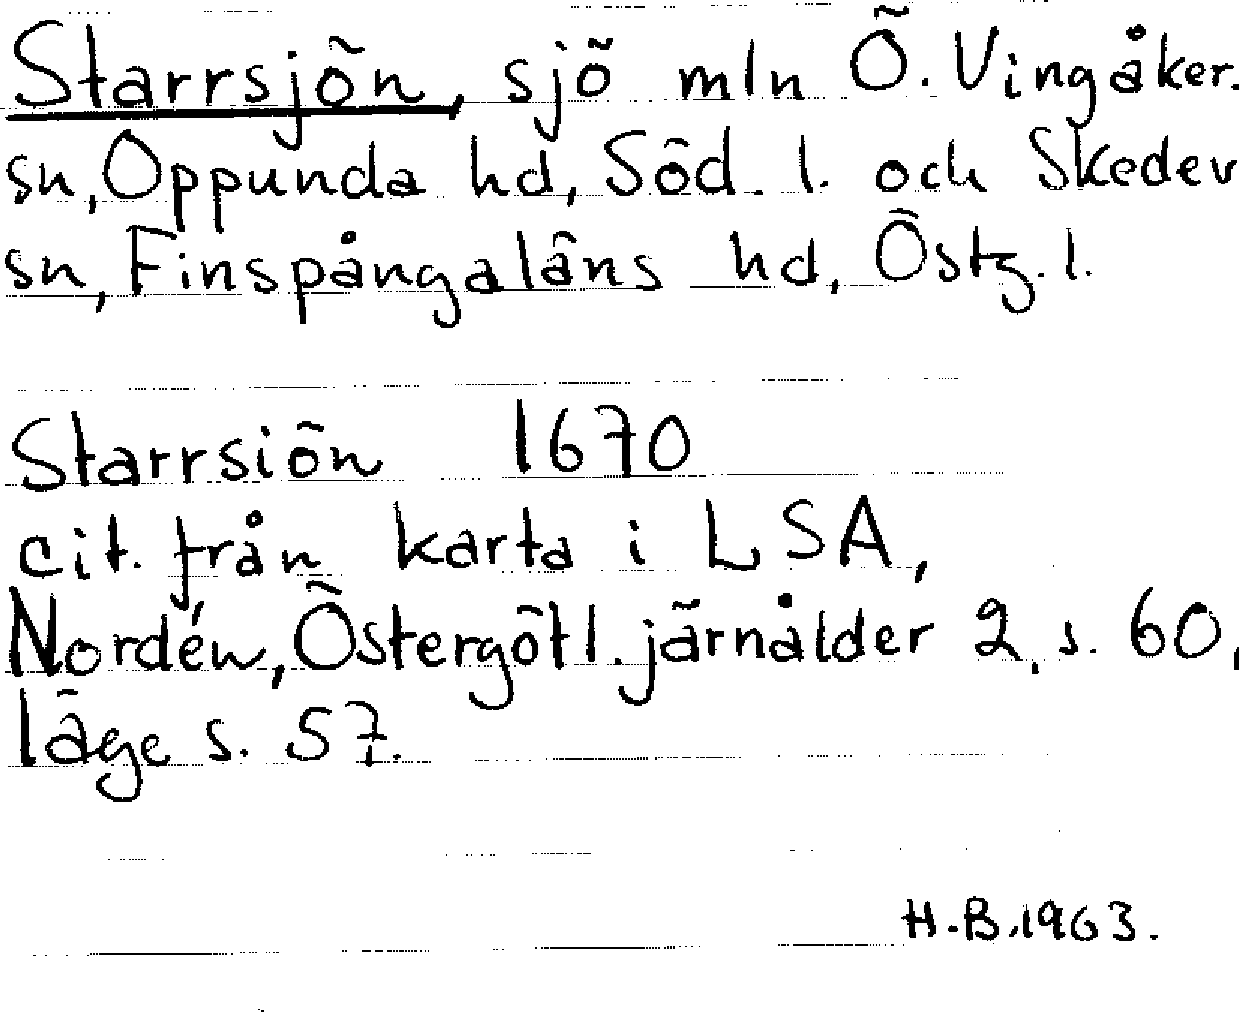 Starrsjön, sjö mln Ö. Vingåker.
sn, Oppunda hd, Söd. l. och Skedev
sn, Finspångaläns hd, Östg. l.
Starrsiön 1670
cit. från karta i LSA,
Nordén, Östergötl. järnålder 2, s. 60,
läge s. 57.
H.B. 1963.